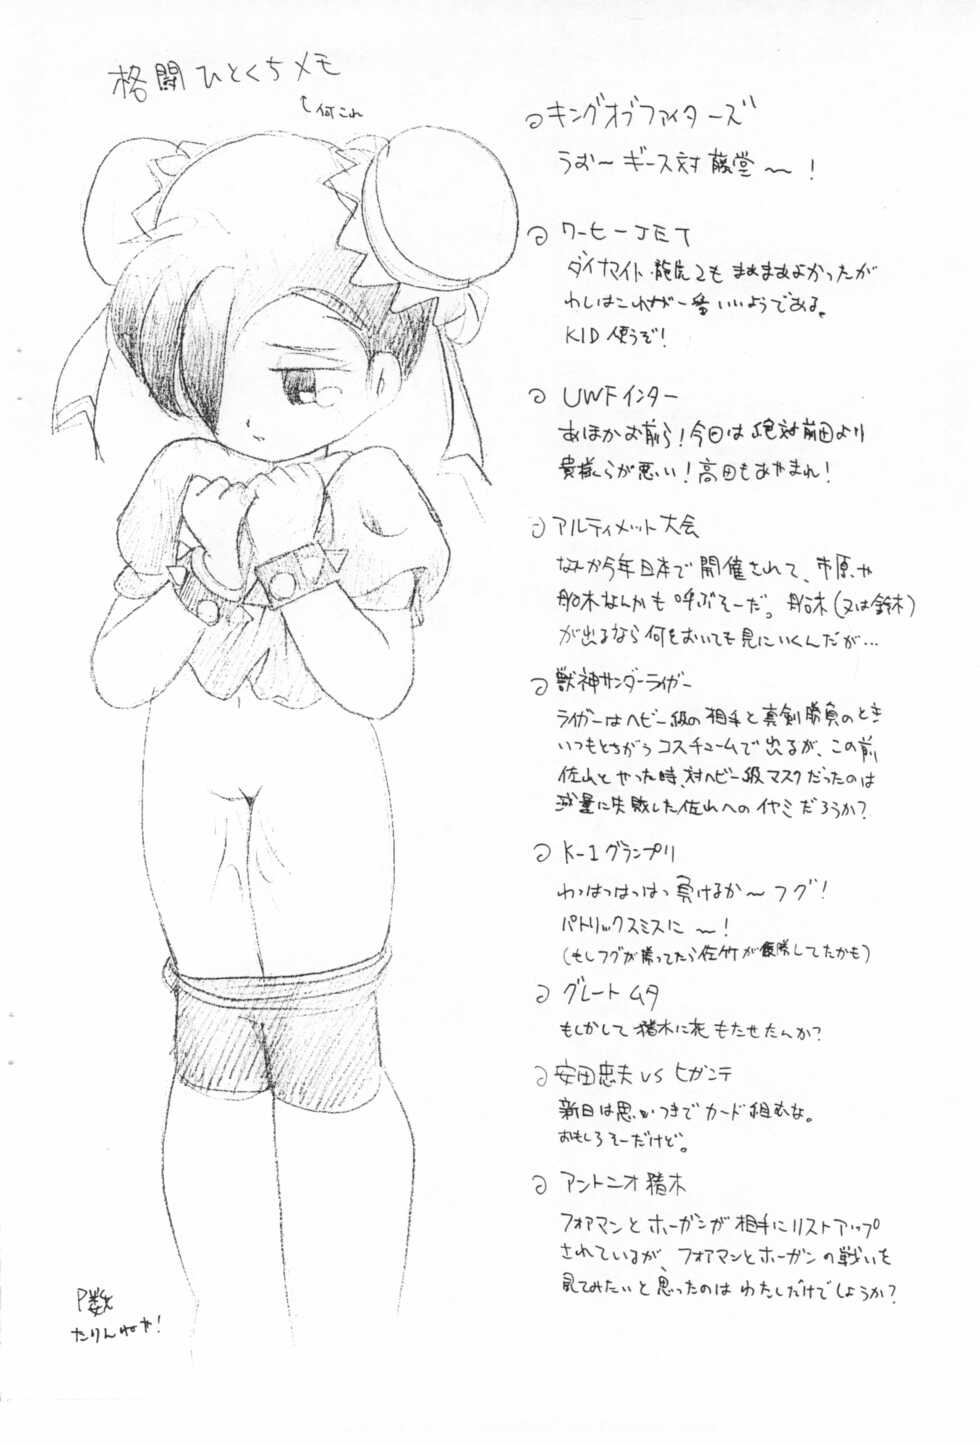 格闘ひとくちメモ
↑何これ
キングオブファイターズ
うむ〜ギース対藤堂〜!
ワーヒーJET
ダイナマイト 龍虎2も まあまあよかったが
わしはこれが一番いいようである。
KID 使うぞ!
UWFインター
あほかお前ら!今回は絶対前田より
貴様らが悪い!高田もあやまれ!
アルティメット大会
なんか今年日本で開催されて、市原や
船木なんかも呼ぶそーだ。船木(又は鈴木)
が出るなら何をおいても見にいくんだが…
獣神サンダーライガー
ライガーはヘビー級の相手と真剣勝負のとき
いつもとちがうコスチュームで出るが、この前
佐山とやった時、対ヘビー級マスクだったのは
減量に失敗した佐山へのイヤミだろうか?
K-1グランプリ
わっはっはっはっ負けるか〜フグ!
パトリックスミスに〜!
(もしフグが勝ってたら佐竹が優勝してたかも)
グレートムタ
もしかして猪木に花もたせたんか?
安田忠夫VSヒガンテ
新日は思いつきでカード組むな。
おもしろそーだけど。
アントニオ猪木
フォアマンとホーガンが相手にリストアップ
されているが、フォアマンとホーガンの戦いを
見てみたいと思ったのはわたしだけでしょうか?
P数
たりんねや!